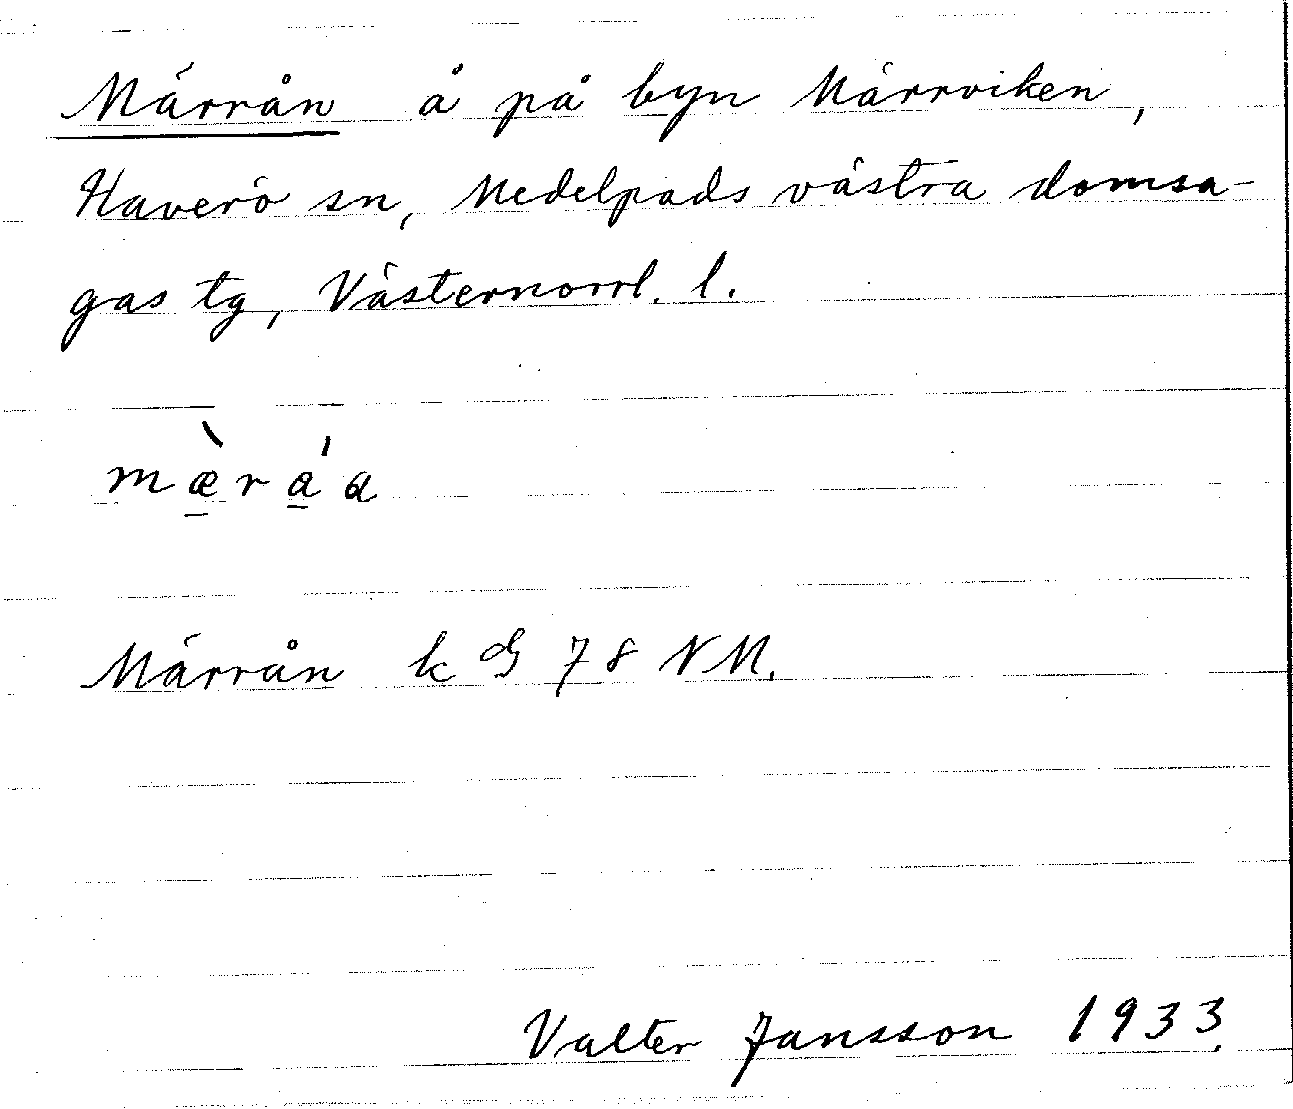 Märrån å på byn Märrviken,
Haverö sn, Medelpads västra domsa-
gas tg, Västernorrl. l.
mæ̀ráa
Märrån k G 78 NM.
Valter Jansson 1933.